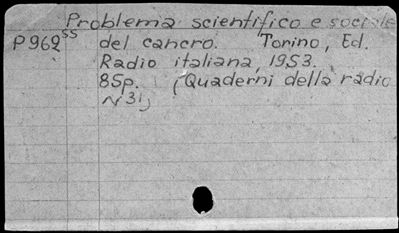 Problema scientifico e sociale
P962ss del cancro. Torino, Ed.
Radio italiana, 1953.
85p. (Quaderni della radio
N 31)